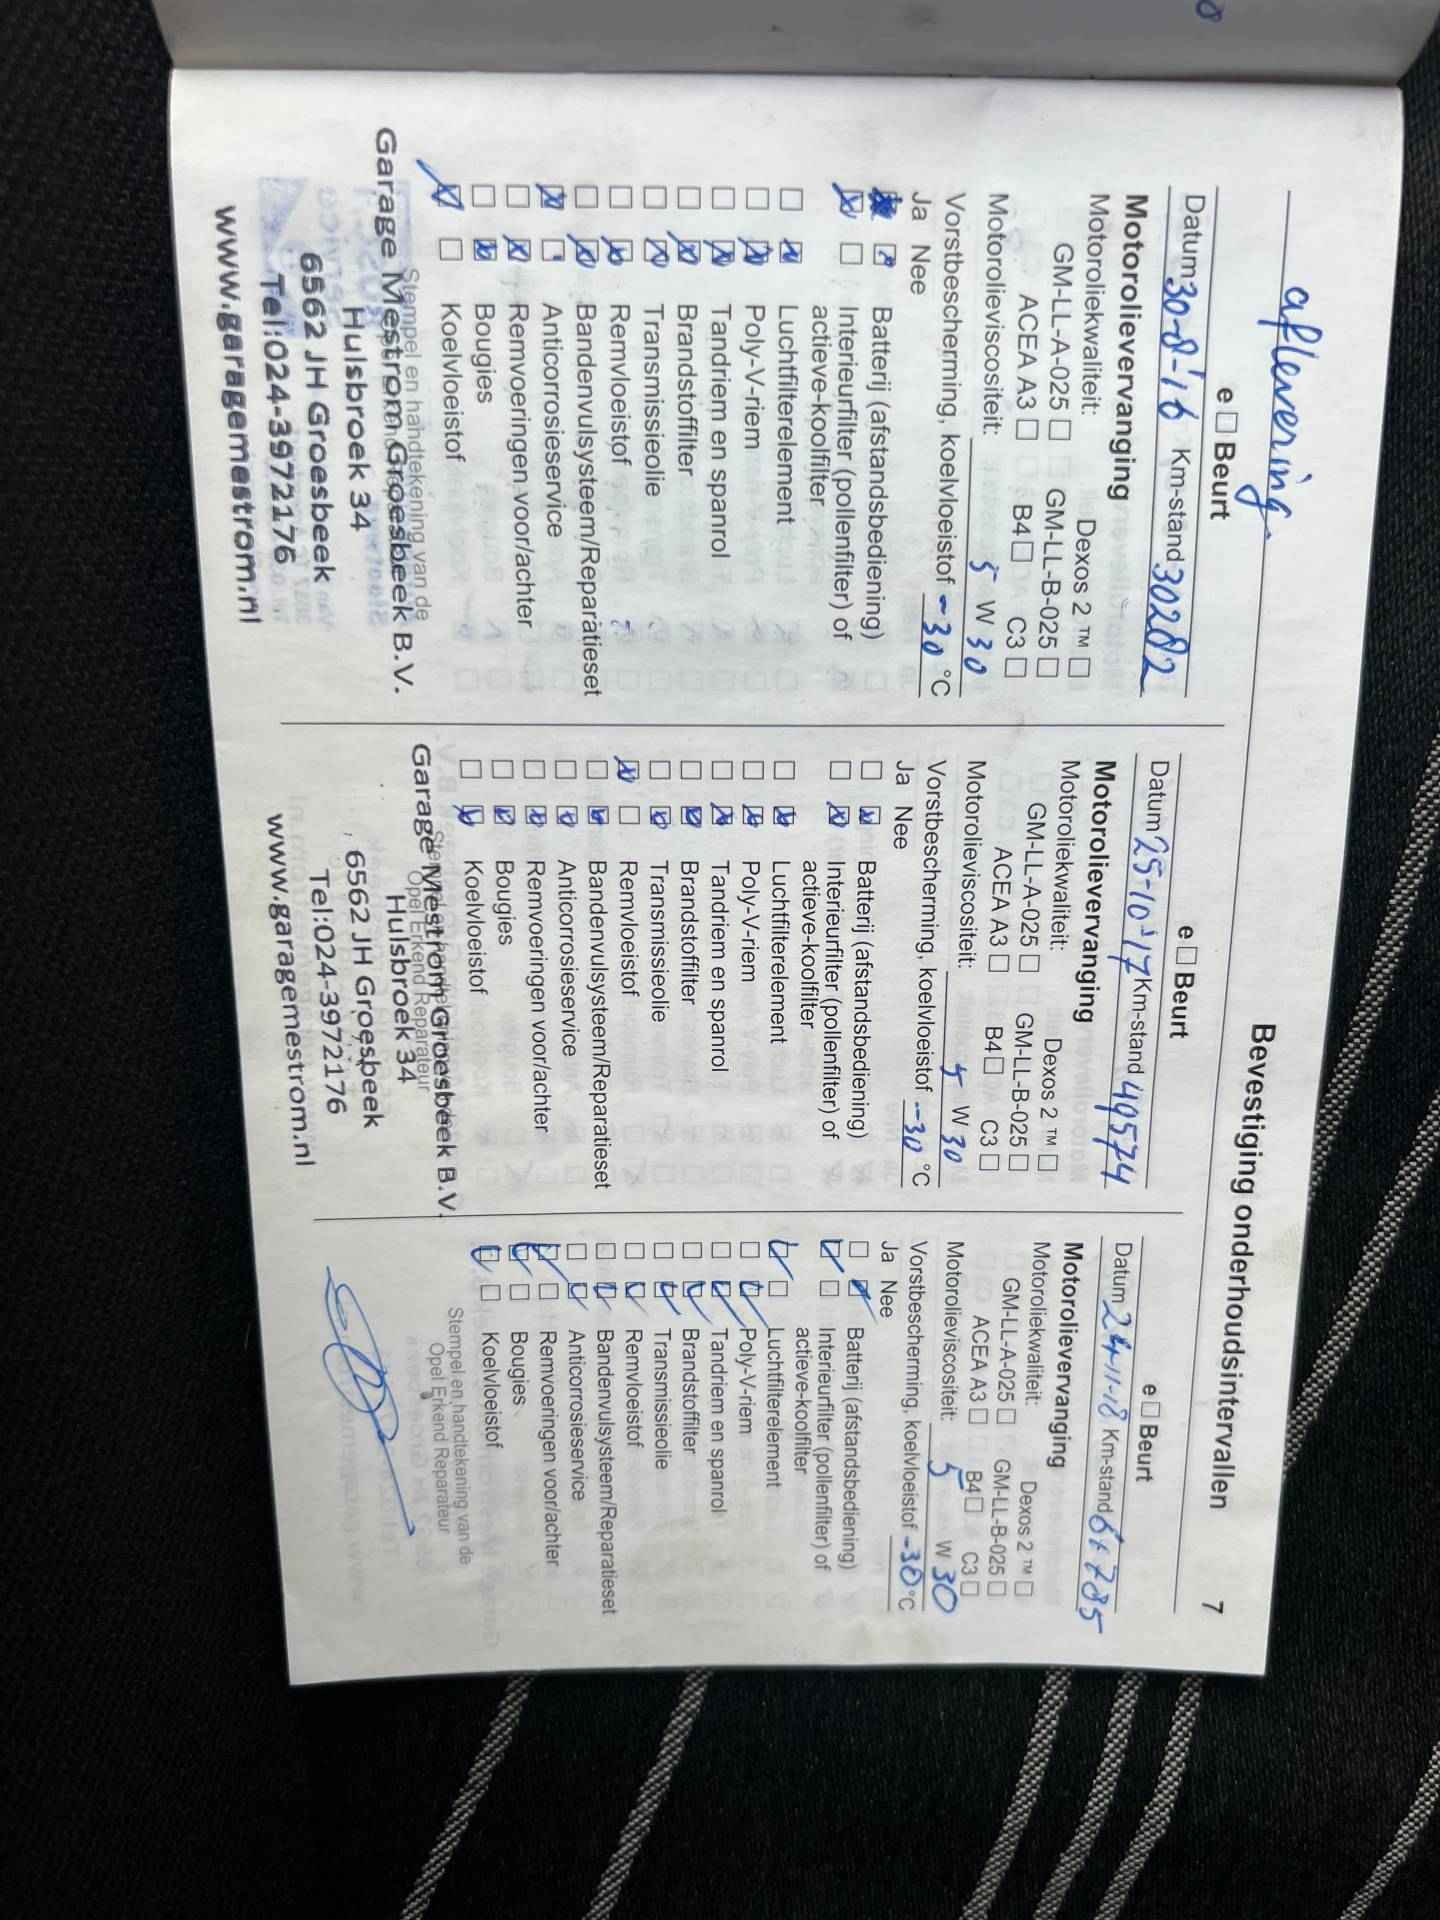 Bevestiging onderhoudsintervallen 7
aflevering
e ☐ Beurt
Datum 30-8-'16 Km-stand 30282
Motorolievervanging
Motoroliekwaliteit: Dexos 2 ™ ☐
GM-LL-A-025 ☐ GM-LL-B-025 ☐
ACEA A3 ☐ B4 ☐ C3 ☐
Motorolieviscositeit: 5 W 30
Vorstbescherming, koelvloeistof -30 °C
Ja Nee
Batterij (afstandsbediening)
Interieurfilter (pollenfilter) of
actieve-koolfilter
Luchtfilterelement
Poly-V-riem
Tandriem en spanrol
Brandstoffilter
Transmissieolie
Remvloeistof
Bandenvulsysteem/Reparatieset
Anticorrosieservice
Remvoeringen voor/achter
Bougies
Koelvloeistof
Stempel en handtekening van de
Garage Mestrom Groesbeek B.V.
Hulsbroek 34
6562 JH Groesbeek
Tel:024-3972176
www.garagemestrom.nl
e ☐ Beurt
Datum 25-10-'17 Km-stand 49574
Motorolievervanging
Motoroliekwaliteit: Dexos 2 ™ ☐
GM-LL-A-025 ☐ GM-LL-B-025 ☐
ACEA A3 ☐ B4 ☐ C3 ☐
Motorolieviscositeit: 5 W 30
Vorstbescherming, koelvloeistof -30 °C
Ja Nee
Batterij (afstandsbediening)
Interieurfilter (pollenfilter) of
actieve-koolfilter
Luchtfilterelement
Poly-V-riem
Tandriem en spanrol
Brandstoffilter
Transmissieolie
Remvloeistof
Bandenvulsysteem/Reparatieset
Anticorrosieservice
Remvoeringen voor/achter
Bougies
Koelvloeistof
Garage Mestrom Groesbeek B.V.
Opel Erkend Reparateur
Hulsbroek 34
6562 JH Groesbeek
Tel:024-3972176
www.garagemestrom.nl
e ☐ Beurt
Datum 24-11-18 Km-stand
Motorolievervanging
Motoroliekwaliteit: Dexos 2 ™ ☐
GM-LL-A-025 ☐ GM-LL-B-025 ☐
ACEA A3 ☐ B4 ☐ C3 ☐
Motorolieviscositeit: 5 W 30
Vorstbescherming, koelvloeistof -30 °C
Ja Nee
Batterij (afstandsbediening)
Interieurfilter (pollenfilter) of
actieve-koolfilter
Luchtfilterelement
Poly-V-riem
Tandriem en spanrol
Brandstoffilter
Transmissieolie
Remvloeistof
Bandenvulsysteem/Reparatieset
Anticorrosieservice
Remvoeringen voor/achter
Bougies
Koelvloeistof
Stempel en handtekening van de
Opel Erkend Reparateur